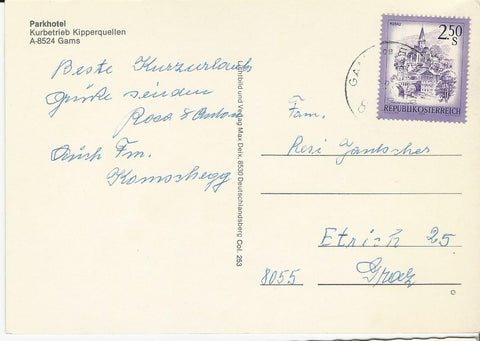 Parkhotel
Kurbetrieb Kipperquellen
A-8524 Gams
Beste Kurzurlaub
Grüße senden
Rosa & Anton
Auch Fm.
Komschegg
Lichtbild und Verlag Max Deix, 8530 Deutschlandsberg Col. 253
2.50
S
REPUBLIK ÖSTERREICH
GAMS
Fam.
Resi Jantscher
Etrich 25
8055 Graz